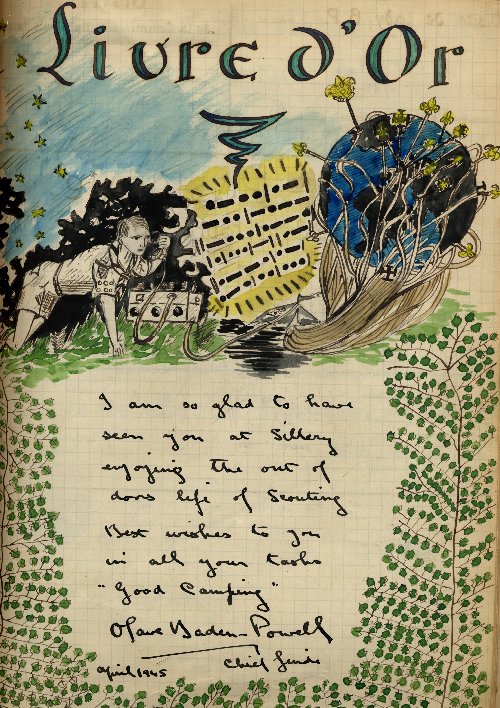 Livre d'Or
I am so glad to have
seen you at Sillery
enjoying the out of
doors life of Scouting
Best wishes to you
in all your tasks
"Good Camping"
Olave Baden-Powell
Chief Guide
April 1945